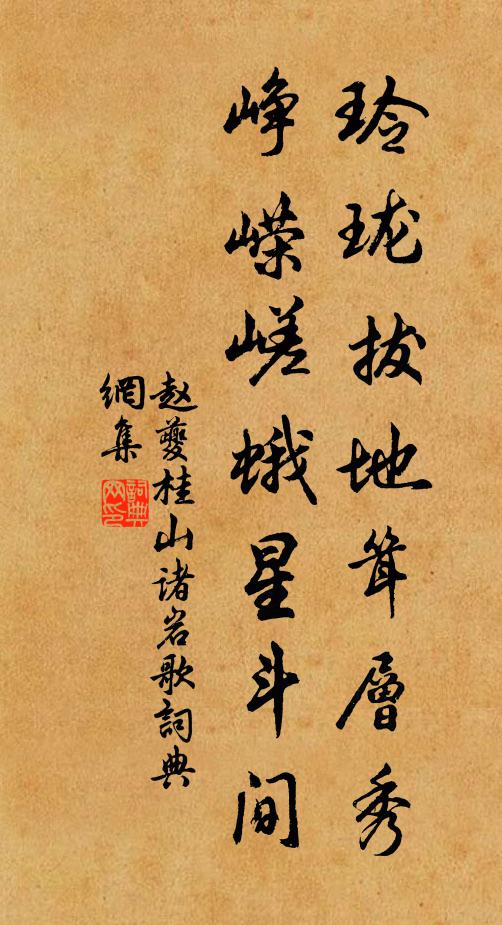 玲珑拔地耸层秀
峥嵘嵯蛾星斗间
赵夔桂山诸岩歌詞典
網集
詞典
网印